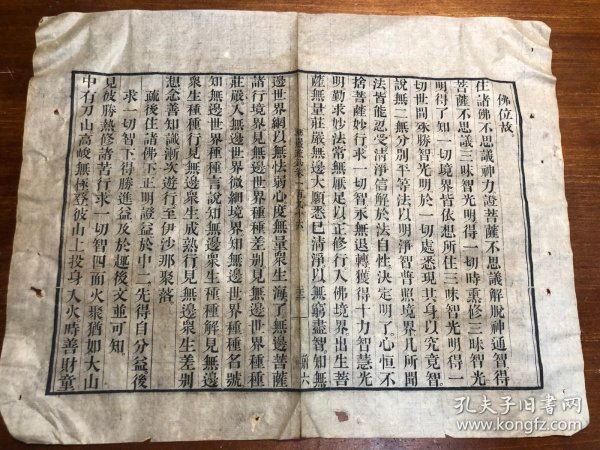 佛位故
住諸佛不思議神力證菩薩不思議解脫神通智得
菩薩不思議三昧智光明得一切時熏修三昧智光
明得了知一切境界皆依想所住三昧智光明得一
切世間殊勝智光明於一切處悉現其身以究竟智
說無二無分別平等法以明淨智普照境界凡所聞
法皆能忍受清淨信解於法自性決定明了心恒不
捨菩薩妙行求一切智永無退轉獲得十力智慧光
明勤求妙法常無厭足以正修行入佛境界出生菩
薩無量莊嚴無邊大願悉已清淨以無窮盡智知無
邊世界網以無怯弱心度無量衆生海了無邊菩薩
諸行境界見無邊世界種種差別見無邊世界種種
莊嚴入無邊世界微細境界知無邊世界種種名號
知無邊世界種種言說知無邊衆生種種解見無邊
衆生種種行見無邊衆生成熟行見無邊衆生差別
想念善知識漸次遊行至伊沙那聚落
疏後住諸佛下正明證益於中二先得自分益後
求一切智下得勝進益及於趣後文並可知
見彼勝熱修諸苦行求一切智四面火聚猶如大山
中有刀山高峻無極登彼山上投身入火時善財童
孔夫子旧书网
www.kongfz.com